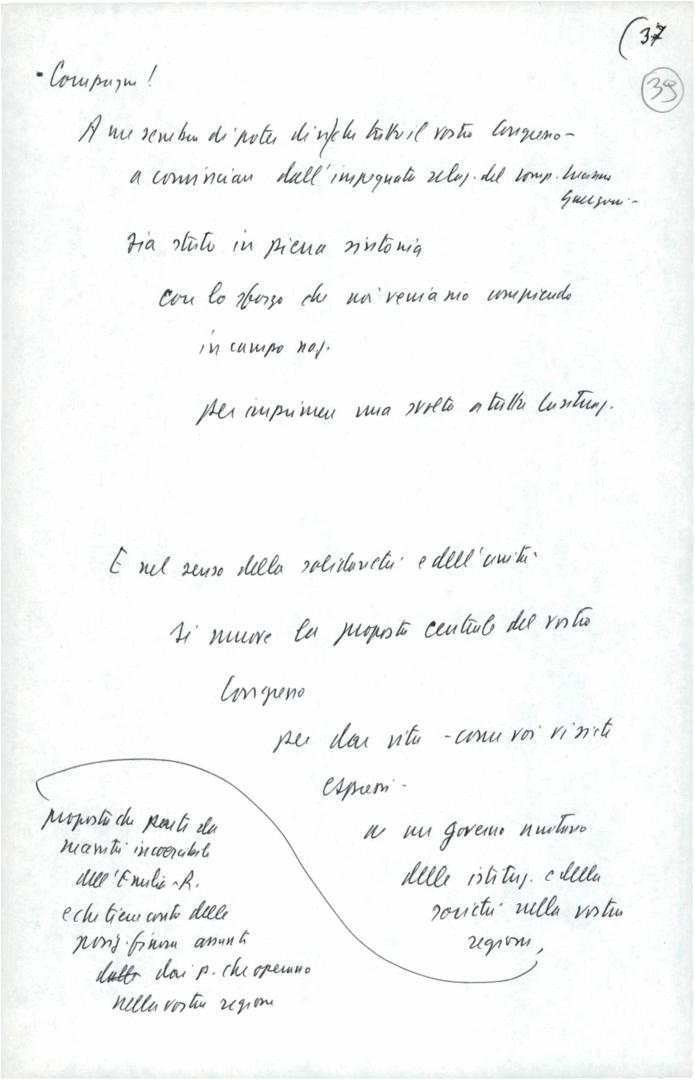 (37
39
- Compagni!
A me sembra di poter dire che tutto il vostro Congresso -
a cominciare dall'impegnata relaz. del comp. Luciano
Guerzoni -
sia stato in piena sintonia
con lo sforzo che noi veniamo compiendo
in campo naz.
per imprimere una svolta a tutta la situaz.
E nel senso della solidarietà e dell'unità
si muove la proposta centrale del vostro
Congresso
per dar vita - come voi vi siete
espressi -
a un governo nuovo
delle istituz. e della
società nella vostra
regione,
proposta che parte da
necessità
dell'Emilia-R.
e che tiene conto delle
posiz. finora assunte
dai p. che operano
nella vostra regione